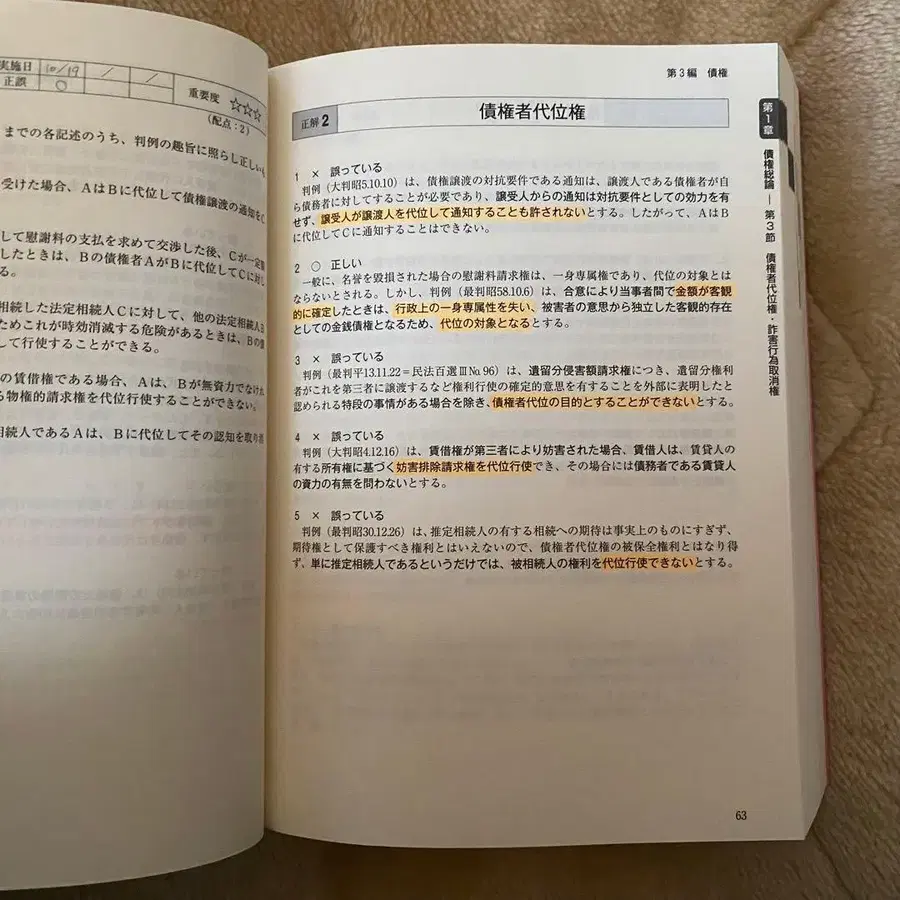 実施日 10/19 / /
正誤 ○
重要度 ☆☆☆
(配点:2)
までの各記述のうち、判例の趣旨に照らし正しいも
受けた場合、AはBに代位して債権譲渡の通知をC
して慰謝料の支払を求めて交渉した後、Cが一定額
したときは、Bの債権者AがBに代位してCに対し
る。
相続した法定相続人Cに対して、他の法定相続人B
ためこれが時効消滅する危険があるときは、Bの債
して行使することができる。
の賃借権である場合、Aは、Bが無資力でなけれ
ら物権的請求権を代位行使することができない。
相続人であるAは、Bに代位してその認知を取り消
第3編 債権
正解 2 債権者代位権
1 × 誤っている
判例(大判昭5.10.10)は、債権譲渡の対抗要件である通知は、譲渡人である債権者が自
ら債務者に対してすることが必要であり、譲受人からの通知は対抗要件としての効力を有
せず、譲受人が譲渡人を代位して通知することも許されないとする。したがって、AはB
に代位してCに通知することはできない。
2 ○ 正しい
一般に、名誉を毀損された場合の慰謝料請求権は、一身専属権であり、代位の対象とは
ならないとされる。しかし、判例(最判昭58.10.6)は、合意により当事者間で金額が客観
的に確定したときは、行政上の一身専属性を失い、被害者の意思から独立した客観的存在
としての金銭債権となるため、代位の対象となるとする。
3 × 誤っている
判例(最判平13.11.22=民法百選ⅢNo.96)は、遺留分侵害額請求権につき、遺留分権利
者がこれを第三者に譲渡するなど権利行使の確定的意思を有することを外部に表明したと
認められる特段の事情がある場合を除き、債権者代位の目的とすることができないとする。
4 × 誤っている
判例(大判昭4.12.16)は、賃借権が第三者により妨害された場合、賃借人は、賃貸人の
有する所有権に基づく妨害排除請求権を代位行使でき、その場合には債務者である賃貸人
の資力の有無を問わないとする。
5 × 誤っている
判例(最判昭30.12.26)は、推定相続人の有する相続への期待は事実上のものにすぎず、
期待権として保護すべき権利とはいえないので、債権者代位権の被保全権利とはなり得
ず、単に推定相続人であるというだけでは、被相続人の権利を代位行使できないとする。
第1章 債権総論 ― 第3節 債権者代位権・詐害行為取消権
63